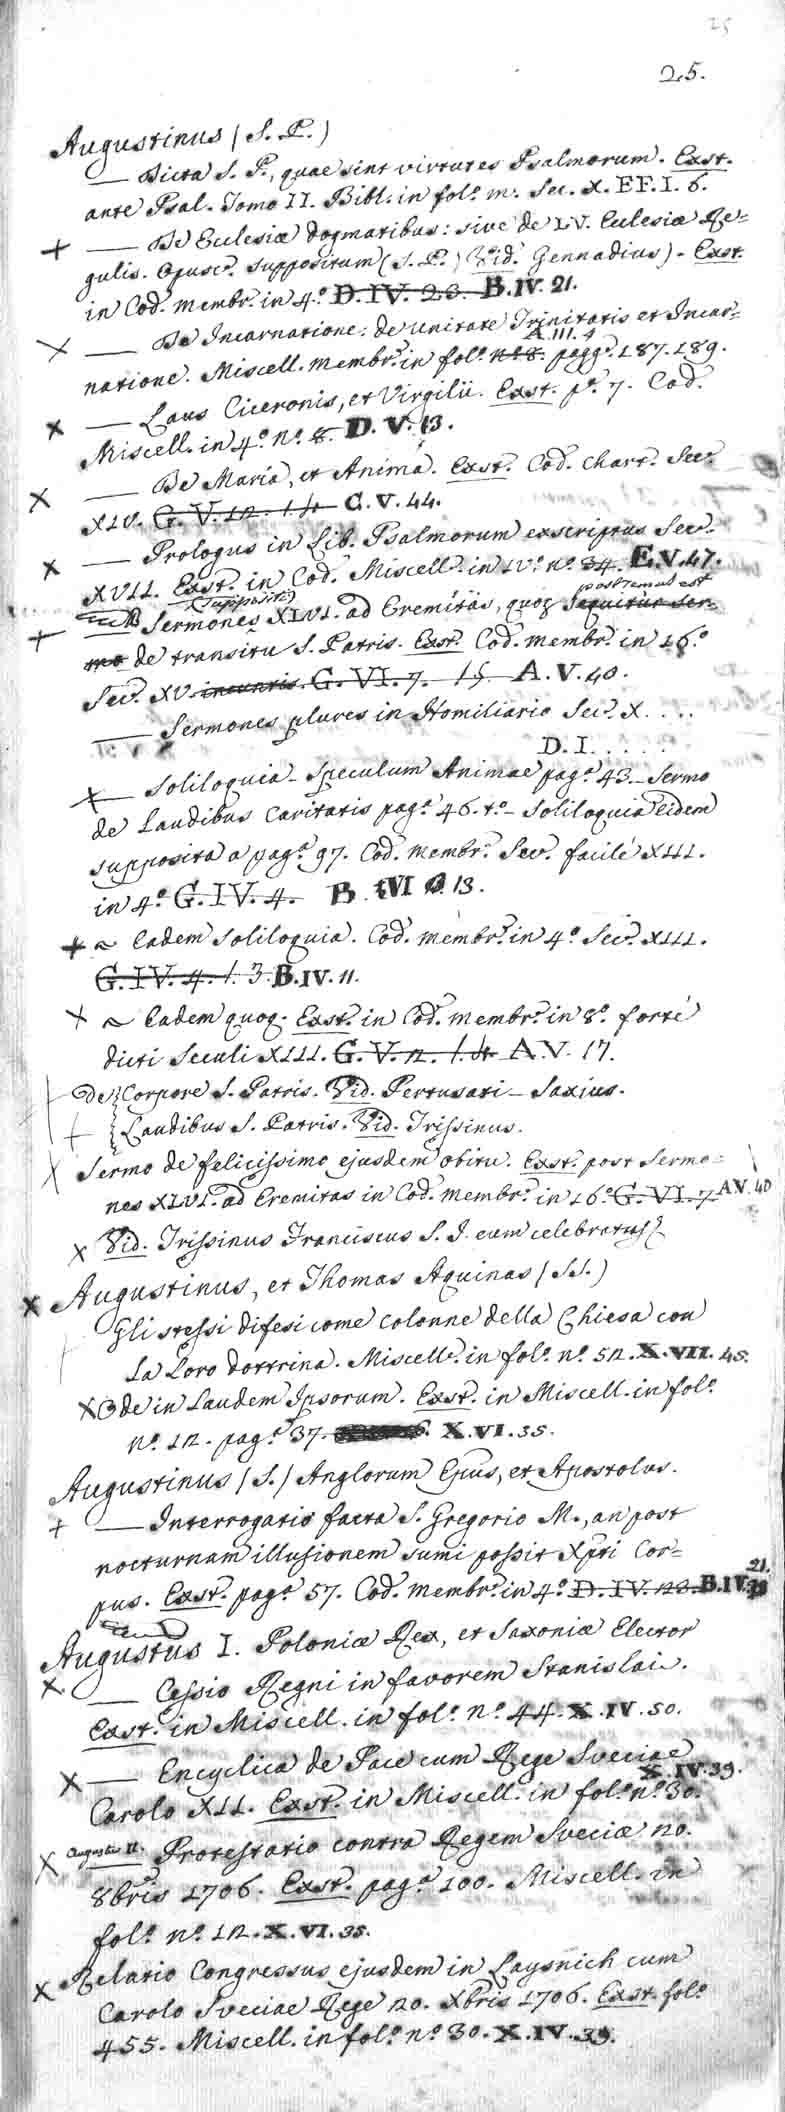 25
25.
Augustinus (S. P.)
— Dicta S. P., quae sint virtutes Psalmorum. Exst.
ante Psal. Tomo II. Bibl. in fol.º m. Sec. X. EF. I. 6.
+ — De Eclesiæ dogmatibus: sive de LV. Eclesiæ Re=
gulis. Opusc.m suppositum (S. P.) Vid. Gennadius) - Exst.
in Cod. membr. in 4.º D. IV. 23. B. IV. 21.
× — De Incarnatione: de unitate Trinitatis et Incar=
A. III. 4
natione. Miscell. membr. in fol.º n.º 8. pagg. 187. 189.
× — Laus Ciceronis, et Virgilii. Exst. p.º 7. Cod.
Miscell. in 4.º n.º 8. D. V. 13.
× — De Maria, et Anima. Exst. Cod. chart. Sec.
XIV. G. V. 12. 14 C. V. 44.
× — Prologus in Lib. Psalmorum exscriptus Sec.
XVII. Exst. in Cod. Miscell. in IV.º n.º 34. E. V. 47.
(suppositi) postremus est
+ — Sermones XLVI. ad Eremitas, quos sequitur ser-
mo de transitu S. Patris. Exst. Cod. membr. in 16.º
Sec. XV. ineuntis. G. VI. 7. 15 A. V. 40.
— Sermones plures in Homiliario Sec. X. . . .
D. I. . . . .
× — Soliloquia - Speculum Animae pag.ª 43. - Sermo
de Laudibus Caritatis pag.ª 46. t.º - Soliloquia eidem
supposita a pag.ª 97. Cod. membr. Sec. facilè XIII.
in 4.º G. IV. 4. B. VI 13.
+ ~ Eadem soliloquia. Cod. membr. in 4.º Sec. XIII.
G. IV. 4. 1. 3. B. IV. 11.
× ~ Eadem quoq. Exst. in Cod. membr. in 8.º fortè
dicti seculi XIII. G. V. 2. 14 A. V. 17.
+ De { Corpore S. Patris. Vid. Pertusati - Saxius.
+ { Laudibus S. Patris. Vid. Trissinus.
× Sermo de felicissimo ejusdem obitu. Exst. post Sermo=
nes XLVI. ad Eremitas in Cod. membr. in 16.º G. VI. 7 A V. 40
× Vid. Trissinus Franciscus S. J. eum celebratus
× Augustinus, et Thomas Aquinas (SS.)
Gli stessi difesi come colonne della Chiesa con
la loro dottrina. Miscell. in fol.º n.º 52. X. VII. 45.
× Ode in Laudem Ipsorum. Exst. in Miscell. in fol.º
n.º 12. pag.ª 37. X. VI. 35.
Augustinus (S.) Anglorum Epus, et Apostolus.
+ — Interrogatio facta S. Gregorio M., an post
nocturnam illusionem sumi possit Xpti Cor=
21.
pus. Exst. pag.ª 57. Cod. membr. in 4.º D. IV. 23. B. IV.
Augustus I. Poloniæ Rex, et Saxoniæ Elector
× — Cessio Regni in favorem Stanislai.
Exst. in Miscell. in fol.º n.º 44. X. IV. 50.
× — Encyclica de Pace cum Rege Sveciae
X. IV. 39.
Carolo XII. Exst. in Miscell. in fol.º n.º 30.
× Augustus II. Protestatio contra Regem Sveciæ 20.
8bris 1706. Exst. pag.ª 100. Miscell. in
fol.º n.º 12. X. VI. 35.
× Relatio Congressus ejusdem in Laysnich cum
Carolo Sveciae Rege 20. Xbris 1706. Exst. fol.º
455. Miscell. in fol.º n.º 30. X. IV. 39.